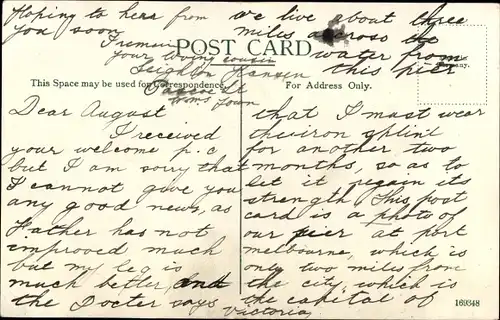 Hoping to hear from
you soon
I remain
your loving cousin
Leighton Hansen
Wms Town
we live about three
miles across the
water from
this pier
POST CARD
This Space may be used for Correspondence.
For Address Only.
Dear August
I received
your welcome p.c
but I am sorry that
I cannot give you
any good news, as
Father has not
improved much
but my leg is
much better, and
the Docter says
that I must wear
the iron splint
for another two
months, so as to
let it regain its
strength This post
card is a photo of
our pier at port
melbourne, which is
only two miles from
the city, which is
the capital of
Victoria
169348